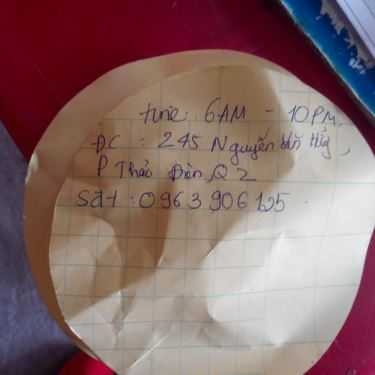 time: 6AM - 10PM.
ĐC : 245 Nguyễn Văn Hưởng,
P Thảo Điền, Q2
sđt : 0963 906 125